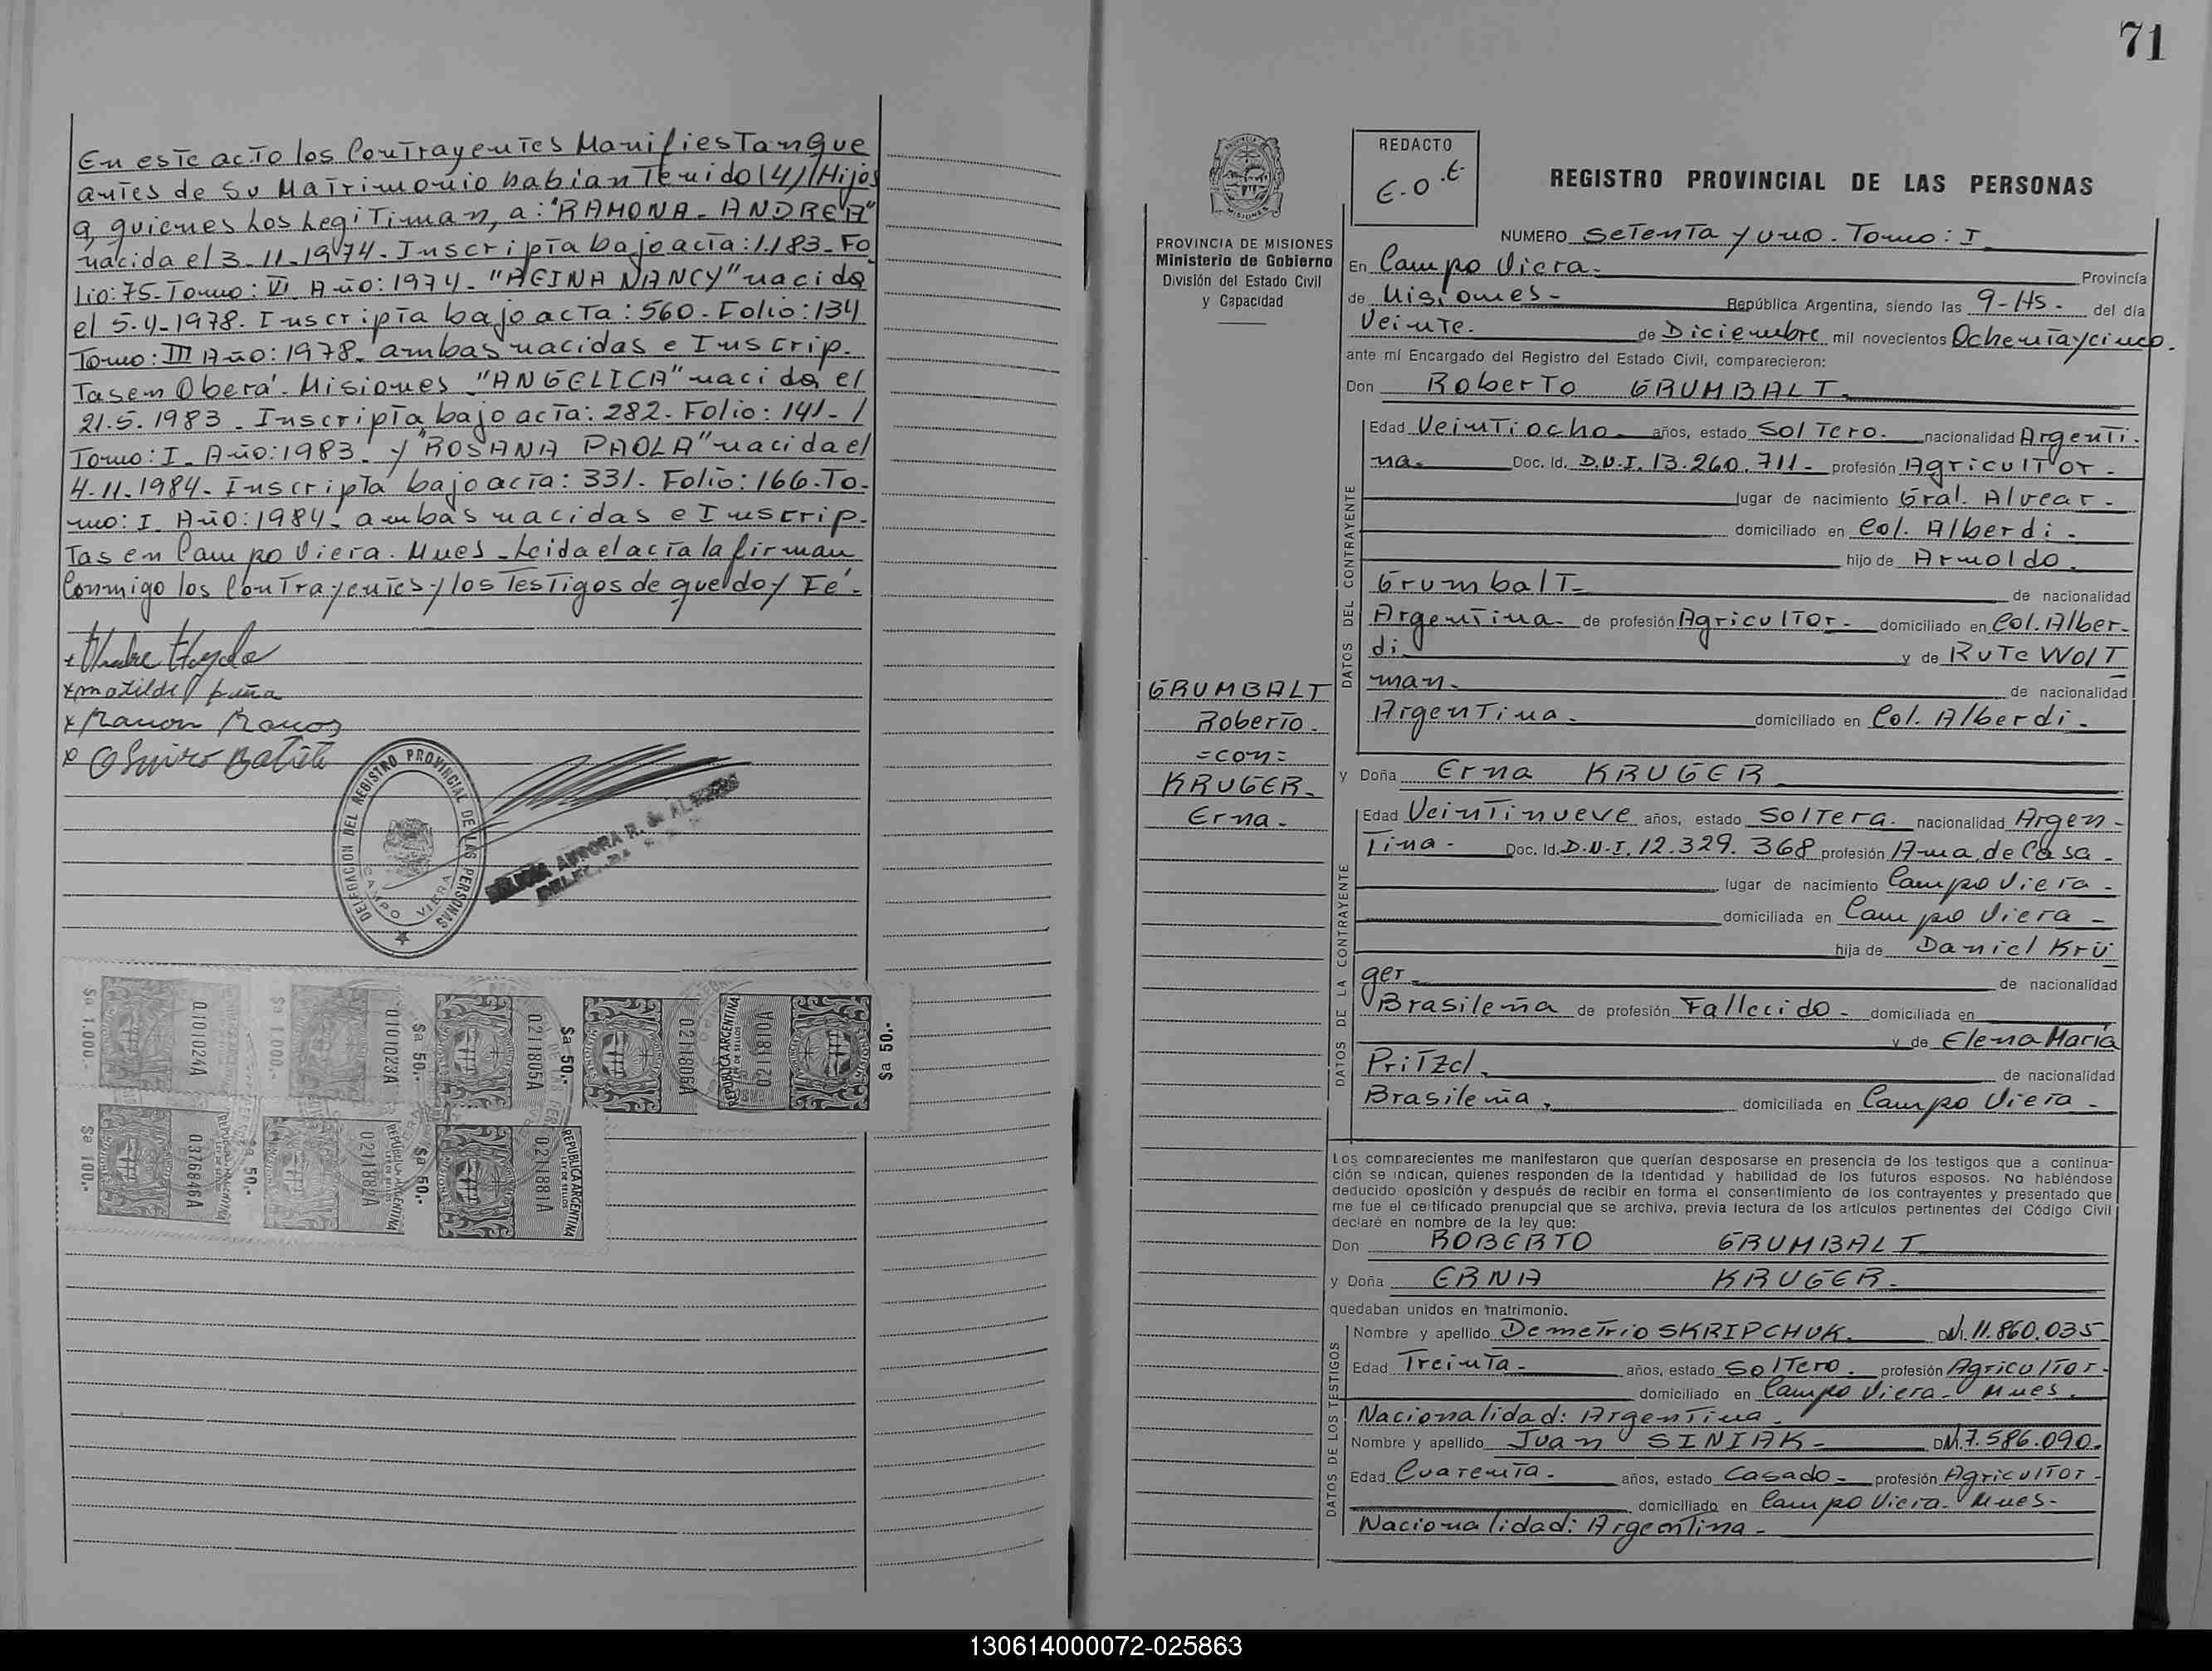 En este acto los Contrayentes Manifiestan que
antes de su Matrimonio habian Tenido (4) Hijos
a quienes Los Legitiman, a: "RAMONA - ANDREA"
nacida el 3-11-1974. Inscripta bajo acta: 1.183. Fo
lio: 75. Tomo: VI. Año: 1974. "REINA NANCY" nacida
el 5.4.1978. Inscripta bajo acta: 560. Folio: 134
Tomo: III Año: 1978. ambas nacidas e Inscrip.
Tas en Oberá. Misiones "ANGELICA" nacida el
21.5.1983. Inscripta bajo acta: 282. Folio: 141. /
Tomo: I. Año: 1983. y "ROSANA PAOLA" nacida el
4.11.1984. Inscripta bajo acta: 331. Folio: 166. To-
mo: I. Año: 1984. ambas nacidas e Inscrip.
Tas en Campo Viera. Mnes. Leida el acta la firman
Conmigo los Contrayentes y los Testigos de que doy Fé.
x Matilde
x Ramon Ramos
DELEGACION DEL REGISTRO PROVINCIAL DE LAS PERSONAS
CAMPO VIERA
AURORA R. de
$a 1.000.-
0101024A
$a 1.000.-
0101023A
$a 50.-
0211805A
$a 50.-
0211806A
REPUBLICA ARGENTINA
LEY DE SELLOS
0211810A
$a 50.-
$a 100.-
0376846A
REPUBLICA ARGENTINA
$a 50.-
0211882A
REPUBLICA ARGENTINA
$a 50.-
0211881A
REPUBLICA ARGENTINA
LEY DE SELLOS
71
PROVINCIA DE MISIONES
Ministerio de Gobierno
División del Estado Civil
y Capacidad
GRUMBALT
Roberto.
=con=
KRUGER.
Erna.
REDACTO
E.O.E.
REGISTRO PROVINCIAL DE LAS PERSONAS
NUMERO Setenta y uno. Tomo: I
En Campo Viera. Provincia
de Misiones- República Argentina, siendo las 9-Hs- del día
Veinte. de Diciembre mil novecientos Ochentaycinco.
ante mí Encargado del Registro del Estado Civil, comparecieron:
Don Roberto GRUMBALT.
DATOS DEL CONTRAYENTE
Edad Veintiocho años, estado Soltero. nacionalidad Argenti.
na. Doc. Id. D.N.I. 13.260.711- profesión Agricultor.
lugar de nacimiento Gral. Alvear.
domiciliado en Col. Alberdi.
hijo de Arnoldo
Grumbalt- de nacionalidad
Argentina- de profesión Agricultor- domiciliado en Col. Alber-
di y de Rute Wolt
man. de nacionalidad
Argentina. domiciliado en Col. Alberdi.
y Doña Erna KRUGER
DATOS DE LA CONTRAYENTE
Edad Veintinueve años, estado Soltera. nacionalidad Argen-
Tina. Doc. Id. D.N.I. 12.329.368 profesión Ama de Casa.
lugar de nacimiento Campo Viera.
domiciliada en Campo Viera-
hija de Daniel Krü
ger de nacionalidad
Brasileña de profesión Fallecido- domiciliada en
y de Elena María
Pritzel. de nacionalidad
Brasileña. domiciliada en Campo Viera-
Los comparecientes me manifestaron que querían desposarse en presencia de los testigos que a continua-
ción se indican, quienes responden de la identidad y habilidad de los futuros esposos. No habiéndose
deducido oposición y después de recibir en forma el consentimiento de los contrayentes y presentado que
me fue el certificado prenupcial que se archiva, previa lectura de los artículos pertinentes del Código Civil
declaré en nombre de la ley que:
Don ROBERTO GRUMBALT
y Doña ERNA KRUGER.
quedaban unidos en matrimonio.
DATOS DE LOS TESTIGOS
Nombre y apellido Demetrio SKRIPCHUK. DNI. 11.860.035
Edad Treinta- años, estado Soltero. profesión Agricultor-
domiciliado en Campo Viera- Mnes.
Nacionalidad: Argentina.
Nombre y apellido Juan SINIAK- DNI. 7.586.090.
Edad Cuarenta- años, estado Casado- profesión Agricultor-
domiciliado en Campo Viera- Mnes-
Nacionalidad: Argentina-
130614000072-025863